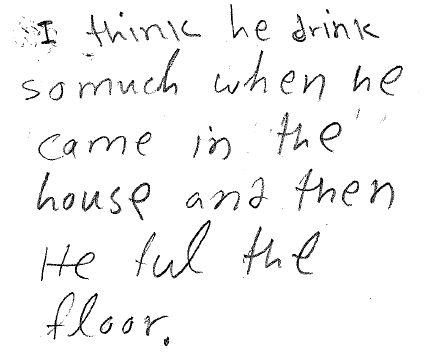 I think he drink
somuch when he
came in the
house and then
He ful the
floor.